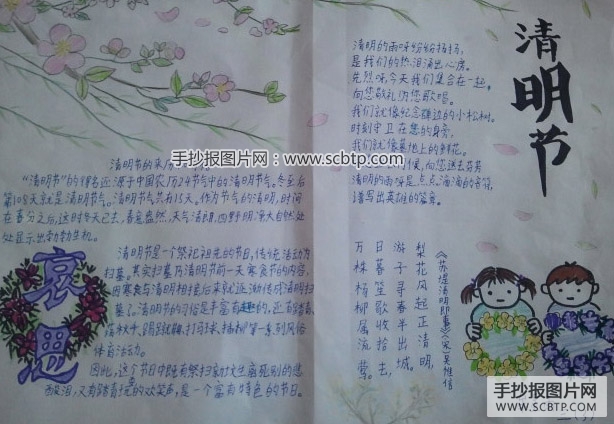 清明节
清明的雨
是我们的热泪涌出心房。
先烈呀,今天我们集合在一起。
向您敬礼,为您歌唱。
我们就像纪念碑边的小松树。
时刻守卫在您的身旁,
我们就像墓地上的鲜花。
时候,向您送去芬芳
清明的雨呀是点点滴滴的音符,
谱写出英雄的
清明节的来历
“清明节”的得名还源于中国农历24节气中的清明节气。冬至后
第108天就是清明节气。清明节气共有15天。作为节气的清明,时间
在春分之后,这时冬天已去,春意盎然,天气清朗,四野明净,大自然处
处显示出勃勃生机。
清明节是一个祭祀祖先的节日,传统活动为
扫墓。其实扫墓乃清明节前一天寒食节的内容,
因寒食与清明相接后来就逐渐传成清明扫
墓了。清明节的习俗是丰富有趣的,还有踏青、
荡秋千、蹴鞠、打马球、插柳等一系列风俗
体育活动。
因此,这个节日中既有祭扫新坟生离死别的悲
酸泪,又有踏青游玩的欢笑声,是一个富有特色的节日。
哀思
《苏堤清明即事》(宋)吴惟信
梨花风起正清明,
游子寻春半出城。
日暮笙歌收拾去,
万株杨柳属流莺。
手抄报图片网:www.scbtp.com
手抄报图片网
WWW.SCBTP.COM